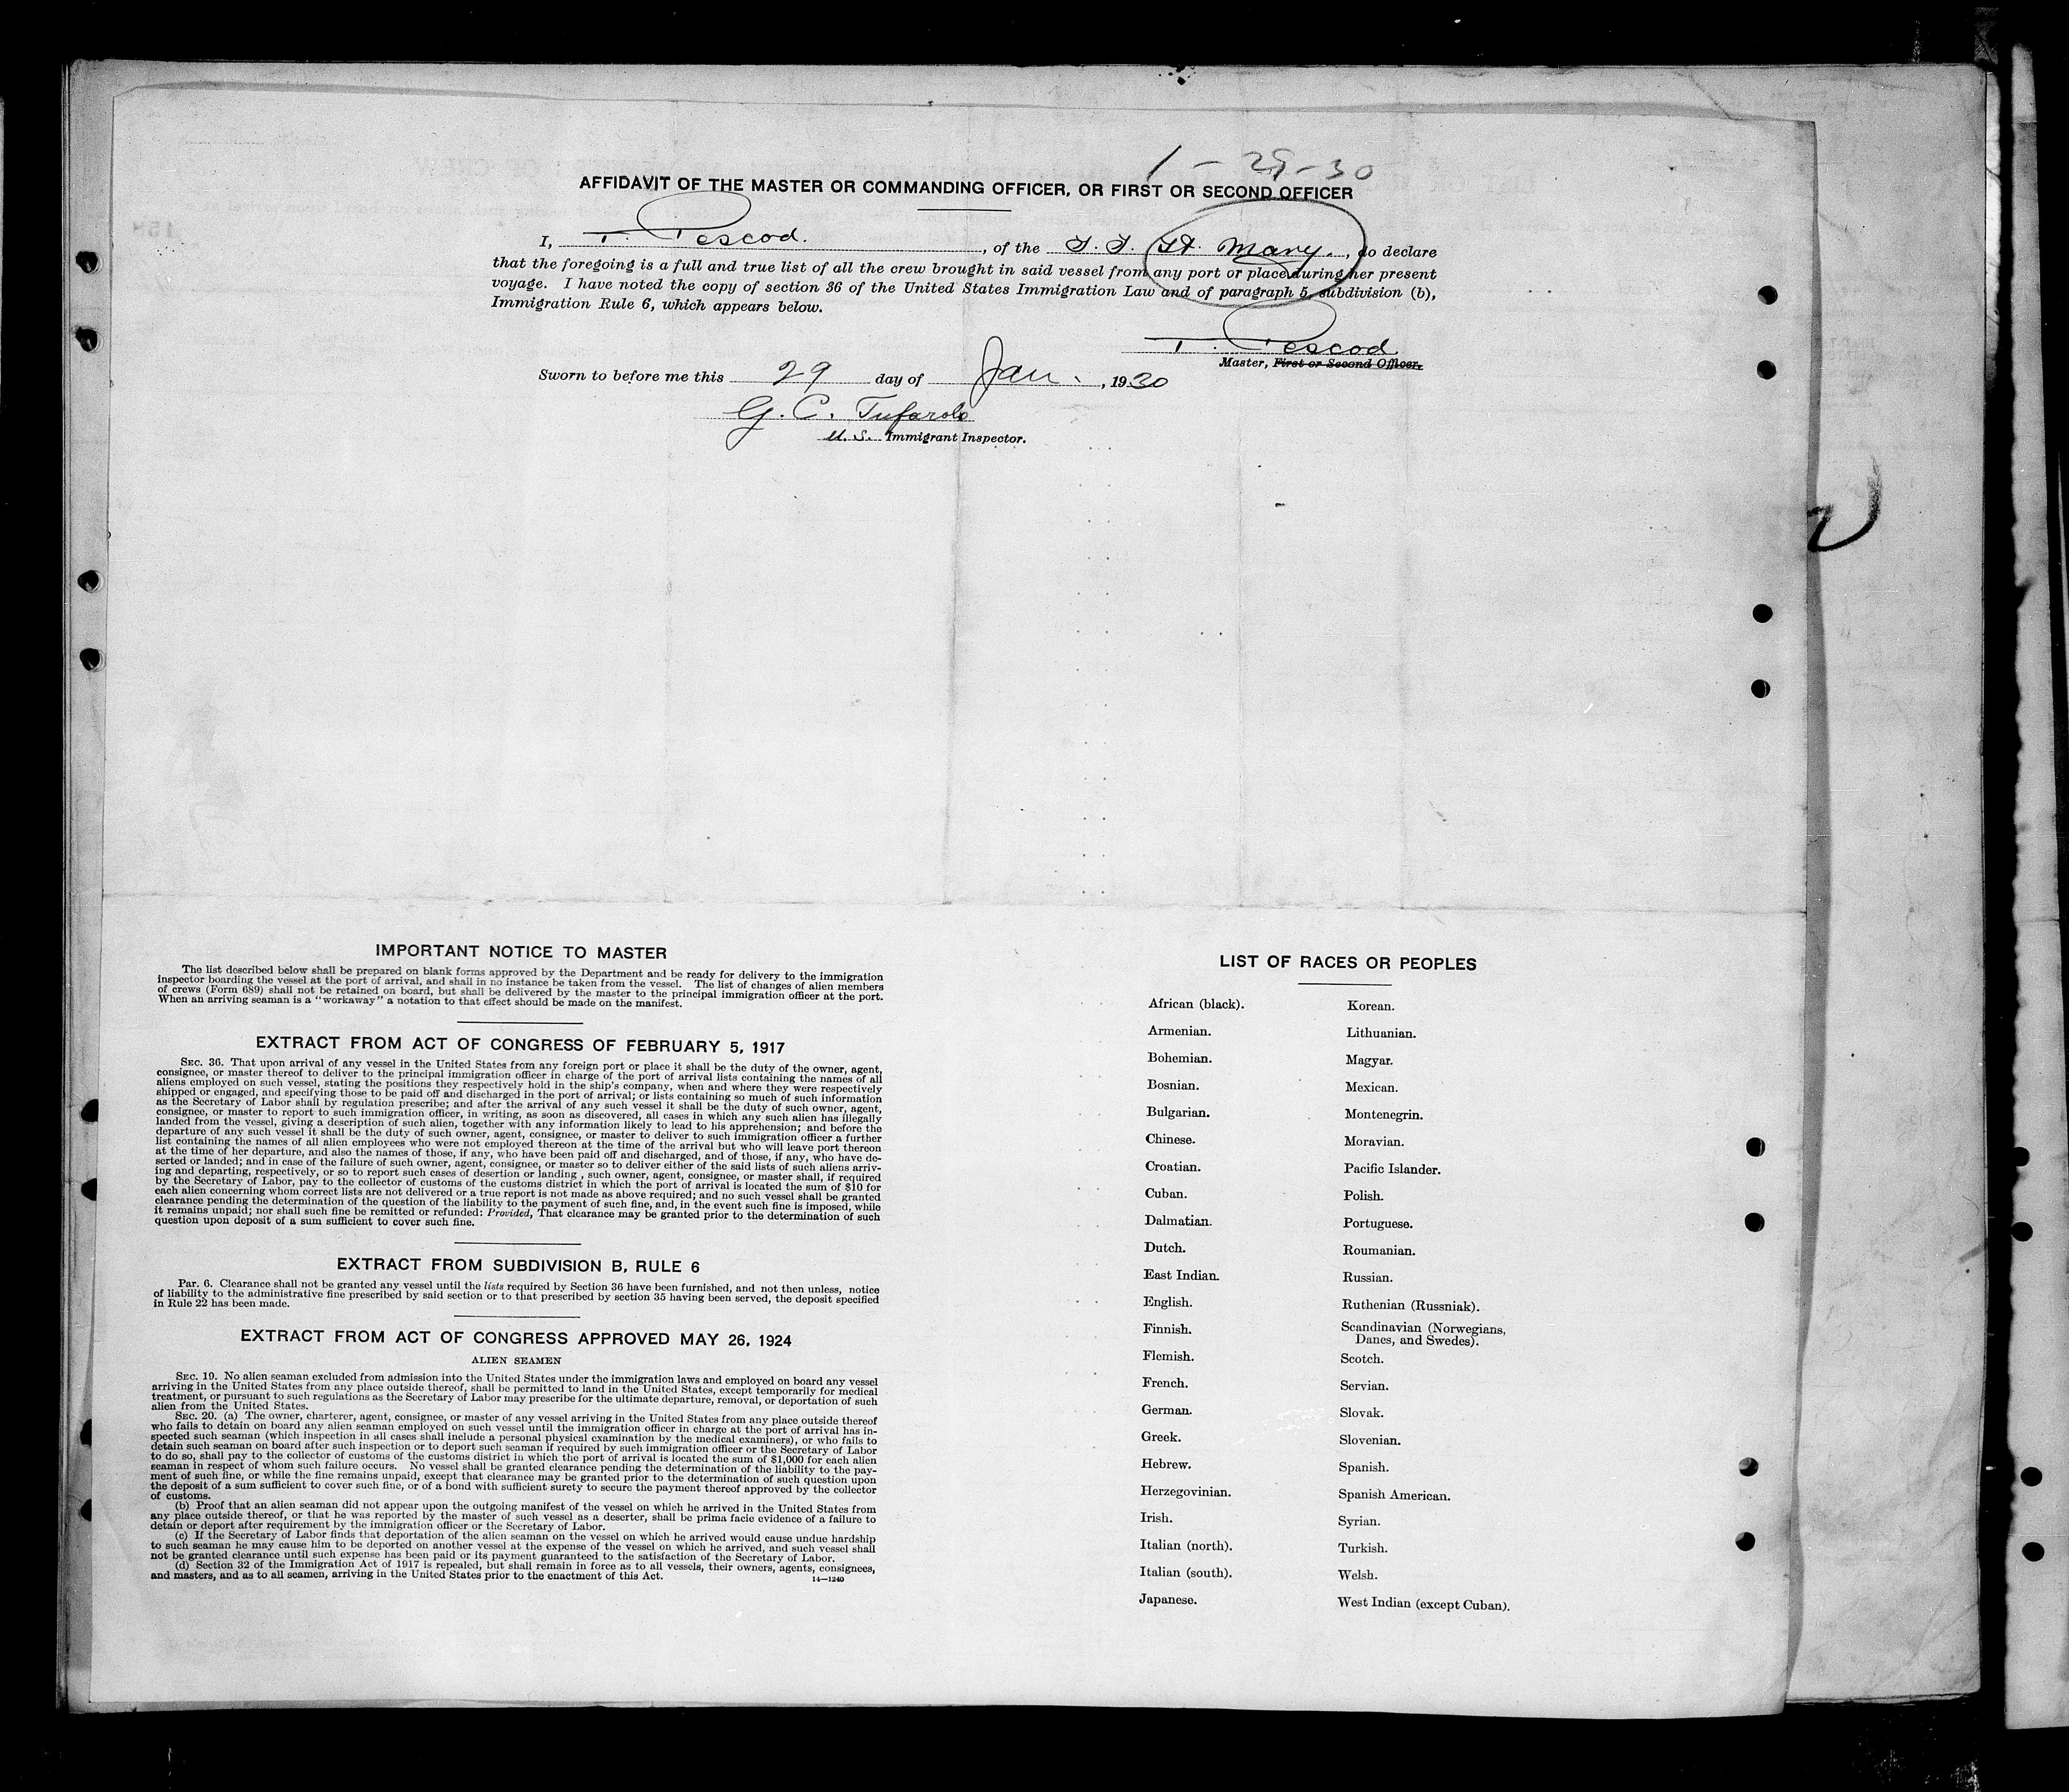 1-29-30
AFFIDAVIT OF THE MASTER OR COMMANDING OFFICER, OR FIRST OR SECOND OFFICER
I, T. Pescod. , of the S. S. St. Mary. , do declare
that the foregoing is a full and true list of all the crew brought in said vessel from any port or place during her present
voyage. I have noted the copy of section 36 of the United States Immigration Law and of paragraph 5, subdivision (b),
Immigration Rule 6, which appears below.
T. Pescod
Master, First or Second Officer.
Sworn to before me this 29 day of Jan. , 1930
G. C. Tufarolo
U. S. Immigrant Inspector.
IMPORTANT NOTICE TO MASTER
The list described below shall be prepared on blank forms approved by the Department and be ready for delivery to the immigration
inspector boarding the vessel at the port of arrival, and shall in no instance be taken from the vessel. The list of changes of alien members
of crews (Form 689) shall not be retained on board, but shall be delivered by the master to the principal immigration officer at the port.
When an arriving seaman is a "workaway" a notation to that effect should be made on the manifest.
EXTRACT FROM ACT OF CONGRESS OF FEBRUARY 5, 1917
SEC. 36. That upon arrival of any vessel in the United States from any foreign port or place it shall be the duty of the owner, agent,
consignee, or master thereof to deliver to the principal immigration officer in charge of the port of arrival lists containing the names of all
aliens employed on such vessel, stating the positions they respectively hold in the ship's company, when and where they were respectively
shipped or engaged, and specifying those to be paid off and discharged in the port of arrival; or lists containing so much of such information
as the Secretary of Labor shall by regulation prescribe; and after the arrival of any such vessel it shall be the duty of such owner, agent,
consignee, or master to report to such immigration officer, in writing, as soon as discovered, all cases in which any such alien has illegally
landed from the vessel, giving a description of such alien, together with any information likely to lead to his apprehension; and before the
departure of any such vessel it shall be the duty of such owner, agent, consignee, or master to deliver to such immigration officer a further
list containing the names of all alien employees who were not employed thereon at the time of the arrival but who will leave port thereon
at the time of her departure, and also the names of those, if any, who have been paid off and discharged, and of those, if any, who have de-
serted or landed; and in case of the failure of such owner, agent, consignee, or master so to deliver either of the said lists of such aliens arriv-
ing and departing, respectively, or so to report such cases of desertion or landing , such owner, agent, consignee, or master shall, if required
by the Secretary of Labor, pay to the collector of customs of the customs district in which the port of arrival is located the sum of $10 for
each alien concerning whom correct lists are not delivered or a true report is not made as above required; and no such vessel shall be granted
clearance pending the determination of the question of the liability to the payment of such fine, and, in the event such fine is imposed, while
it remains unpaid; nor shall such fine be remitted or refunded: Provided, That clearance may be granted prior to the determination of such
question upon deposit of a sum sufficient to cover such fine.
EXTRACT FROM SUBDIVISION B, RULE 6
Par. 6. Clearance shall not be granted any vessel until the lists required by Section 36 have been furnished, and not then unless, notice
of liability to the administrative fine prescribed by said section or to that prescribed by section 35 having been served, the deposit specified
in Rule 22 has been made.
EXTRACT FROM ACT OF CONGRESS APPROVED MAY 26, 1924
ALIEN SEAMEN
SEC. 19. No alien seaman excluded from admission into the United States under the immigration laws and employed on board any vessel
arriving in the United States from any place outside thereof, shall be permitted to land in the United States, except temporarily for medical
treatment, or pursuant to such regulations as the Secretary of Labor may prescribe for the ultimate departure, removal, or deportation of such
alien from the United States.
SEC. 20. (a) The owner, charterer, agent, consignee, or master of any vessel arriving in the United States from any place outside thereof
who fails to detain on board any alien seaman employed on such vessel until the immigration officer in charge at the port of arrival has in-
spected such seaman (which inspection in all cases shall include a personal physical examination by the medical examiners), or who fails to
detain such seaman on board after such inspection or to deport such seaman if required by such immigration officer or the Secretary of Labor
to do so, shall pay to the collector of customs of the customs district in which the port of arrival is located the sum of $1,000 for each alien
seaman in respect of whom such failure occurs. No vessel shall be granted clearance pending the determination of the liability to the pay-
ment of such fine, or while the fine remains unpaid, except that clearance may be granted prior to the determination of such question upon
the deposit of a sum sufficient to cover such fine, or of a bond with sufficient surety to secure the payment thereof approved by the collector
of customs.
(b) Proof that an alien seaman did not appear upon the outgoing manifest of the vessel on which he arrived in the United States from
any place outside thereof, or that he was reported by the master of such vessel as a deserter, shall be prima facie evidence of a failure to
detain or deport after requirement by the immigration officer or the Secretary of Labor.
(c) If the Secretary of Labor finds that deportation of the alien seaman on the vessel on which he arrived would cause undue hardship
to such seaman he may cause him to be deported on another vessel at the expense of the vessel on which he arrived, and such vessel shall
not be granted clearance until such expense has been paid or its payment guaranteed to the satisfaction of the Secretary of Labor.
(d) Section 32 of the Immigration Act of 1917 is repealed, but shall remain in force as to all vessels, their owners, agents, consignees,
and masters, and as to all seamen, arriving in the United States prior to the enactment of this Act.
14—1240
LIST OF RACES OR PEOPLES
African (black).
Armenian.
Bohemian.
Bosnian.
Bulgarian.
Chinese.
Croatian.
Cuban.
Dalmatian.
Dutch.
East Indian.
English.
Finnish.
Flemish.
French.
German.
Greek.
Hebrew.
Herzegovinian.
Irish.
Italian (north).
Italian (south).
Japanese.
Korean.
Lithuanian.
Magyar.
Mexican.
Montenegrin.
Moravian.
Pacific Islander.
Polish.
Portuguese.
Roumanian.
Russian.
Ruthenian (Russniak).
Scandinavian (Norwegians,
Danes, and Swedes).
Scotch.
Servian.
Slovak.
Slovenian.
Spanish.
Spanish American.
Syrian.
Turkish.
Welsh.
West Indian (except Cuban).